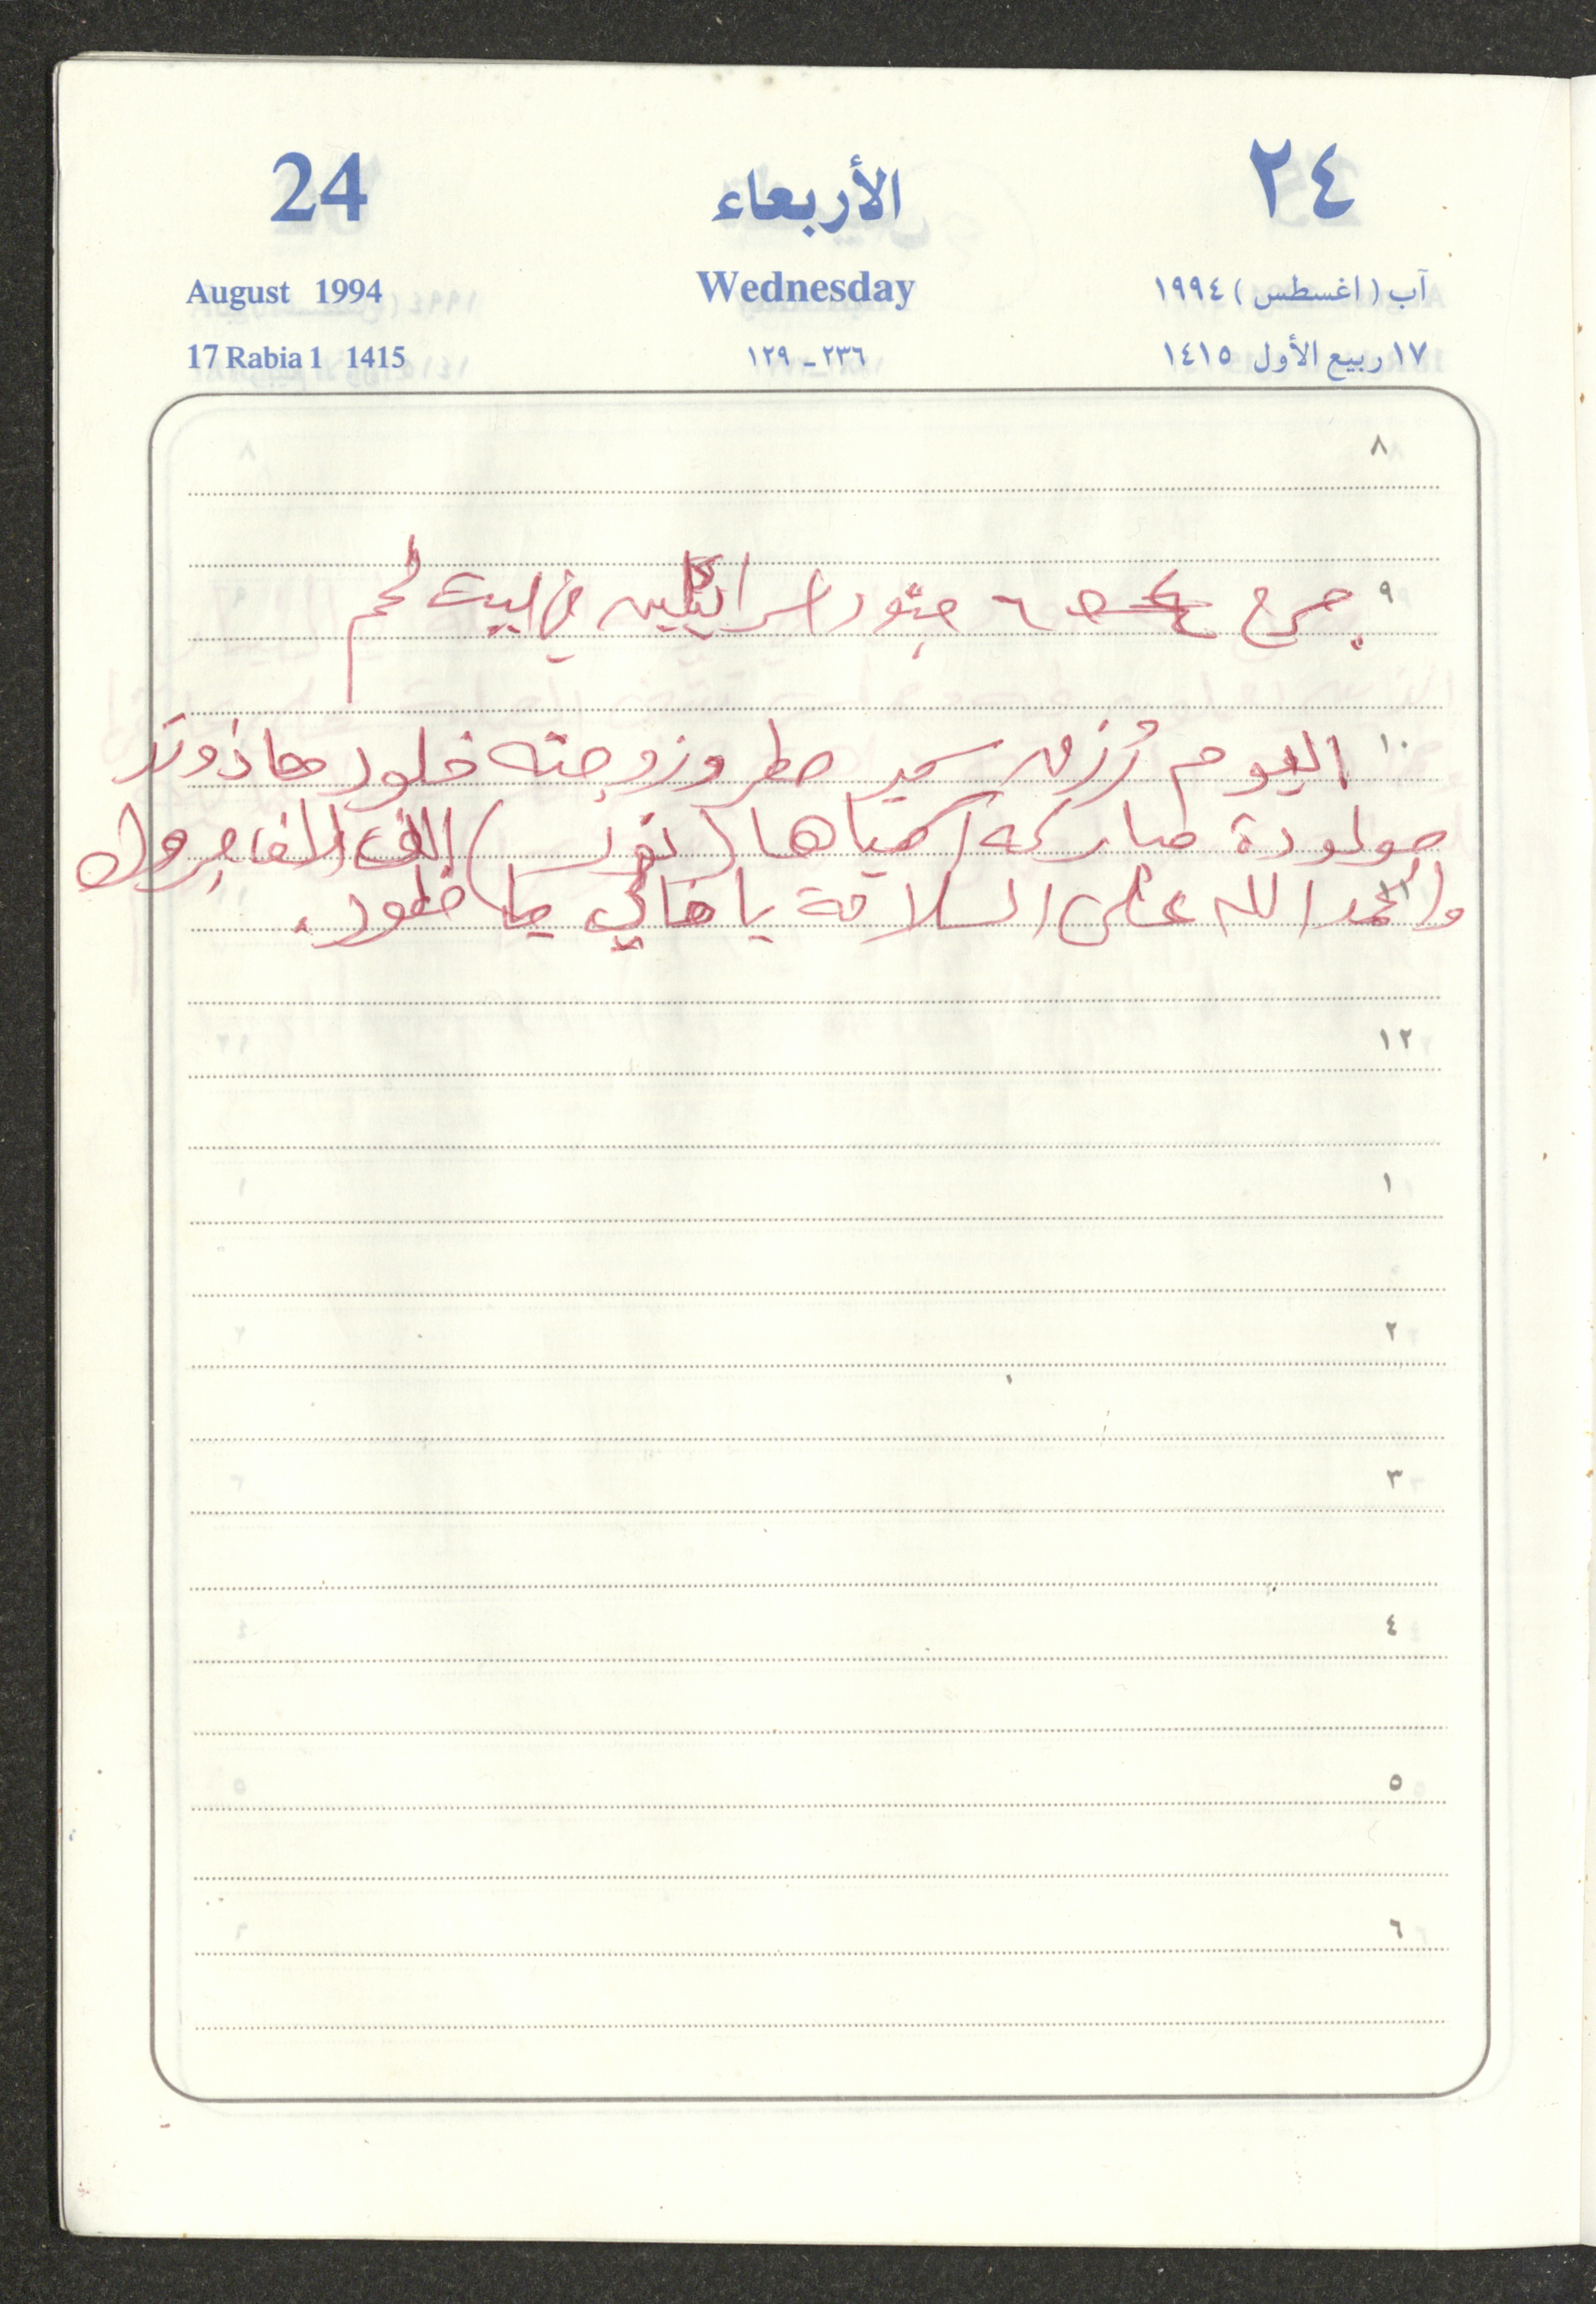 24 الأربعاء ٢٤
August 1994 Wednesday آب (اغسطس) ١٩٩٤
17 Rabia 1 1415 ٢٣٦ - ١٢٩ ١٧ ربيع الأول ١٤١٥
٨
٩ جرح ٦ جنود اسرائيليين في لبيت لحم
١٠ اليوم رُزق سمير مطر وزوجته خلود
مولودة مباركه اسمياها ( ) الف الف مبروك
والحمد الله على السلامة يا يا خلود.
١٢
١
٢
٣
٤
٥
٦